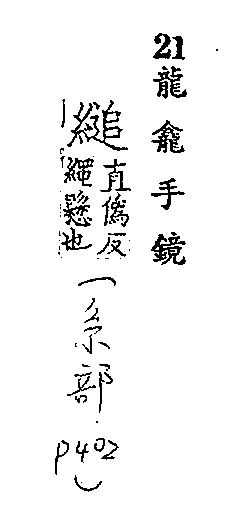 21
龍龕手鏡
縋直僞反
繩懸也
(糸部
P402)